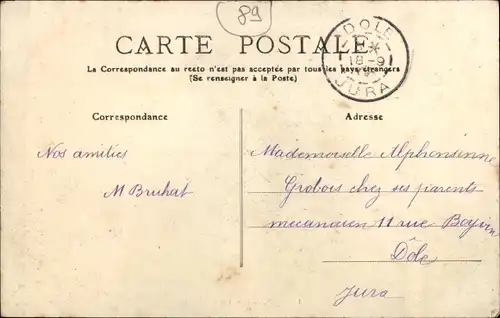 89
DOLE
18-9
JURA
CARTE POSTALE
La Correspondance au recto n'est pas acceptée par tous les pays étrangers
(Se renseigner à la Poste)
Correspondance
Nos amitiés
M Bruhat
Adresse
Mademoiselle Alphonsine
Grobois chez ses parents
mécanicien 11 rue Boyvin
Dôle
Jura